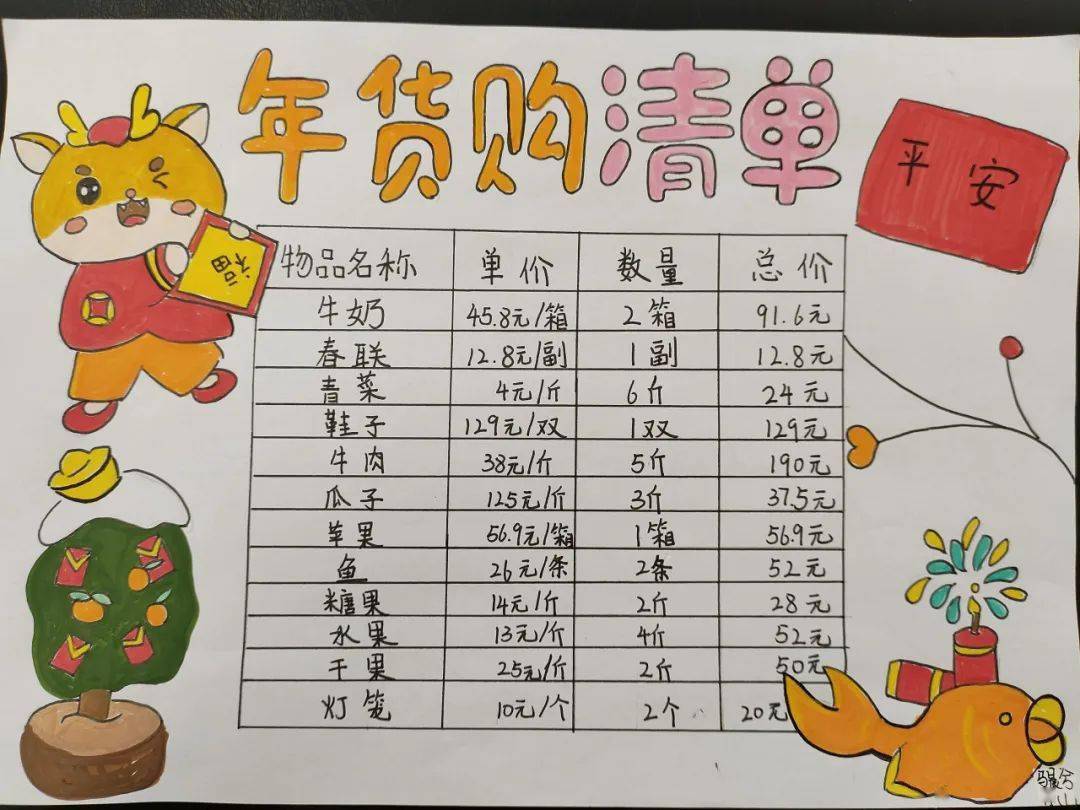 年货购清单
平安
福
物品名称 单价 数量 总价
牛奶 45.8元/箱 2箱 91.6元
春联 12.8元/副 1副 12.8元
青菜 4元/斤 6斤 24元
鞋子 129元/双 1双 129元
牛肉 38元/斤 5斤 190元
瓜子 12.5元/斤 3斤 37.5元
苹果 56.9元/箱 1箱 56.9元
鱼 26元/条 2条 52元
糖果 14元/斤 2斤 28元
水果 13元/斤 4斤 52元
干果 25元/斤 2斤 50元
灯笼 10元/个 2个 20元